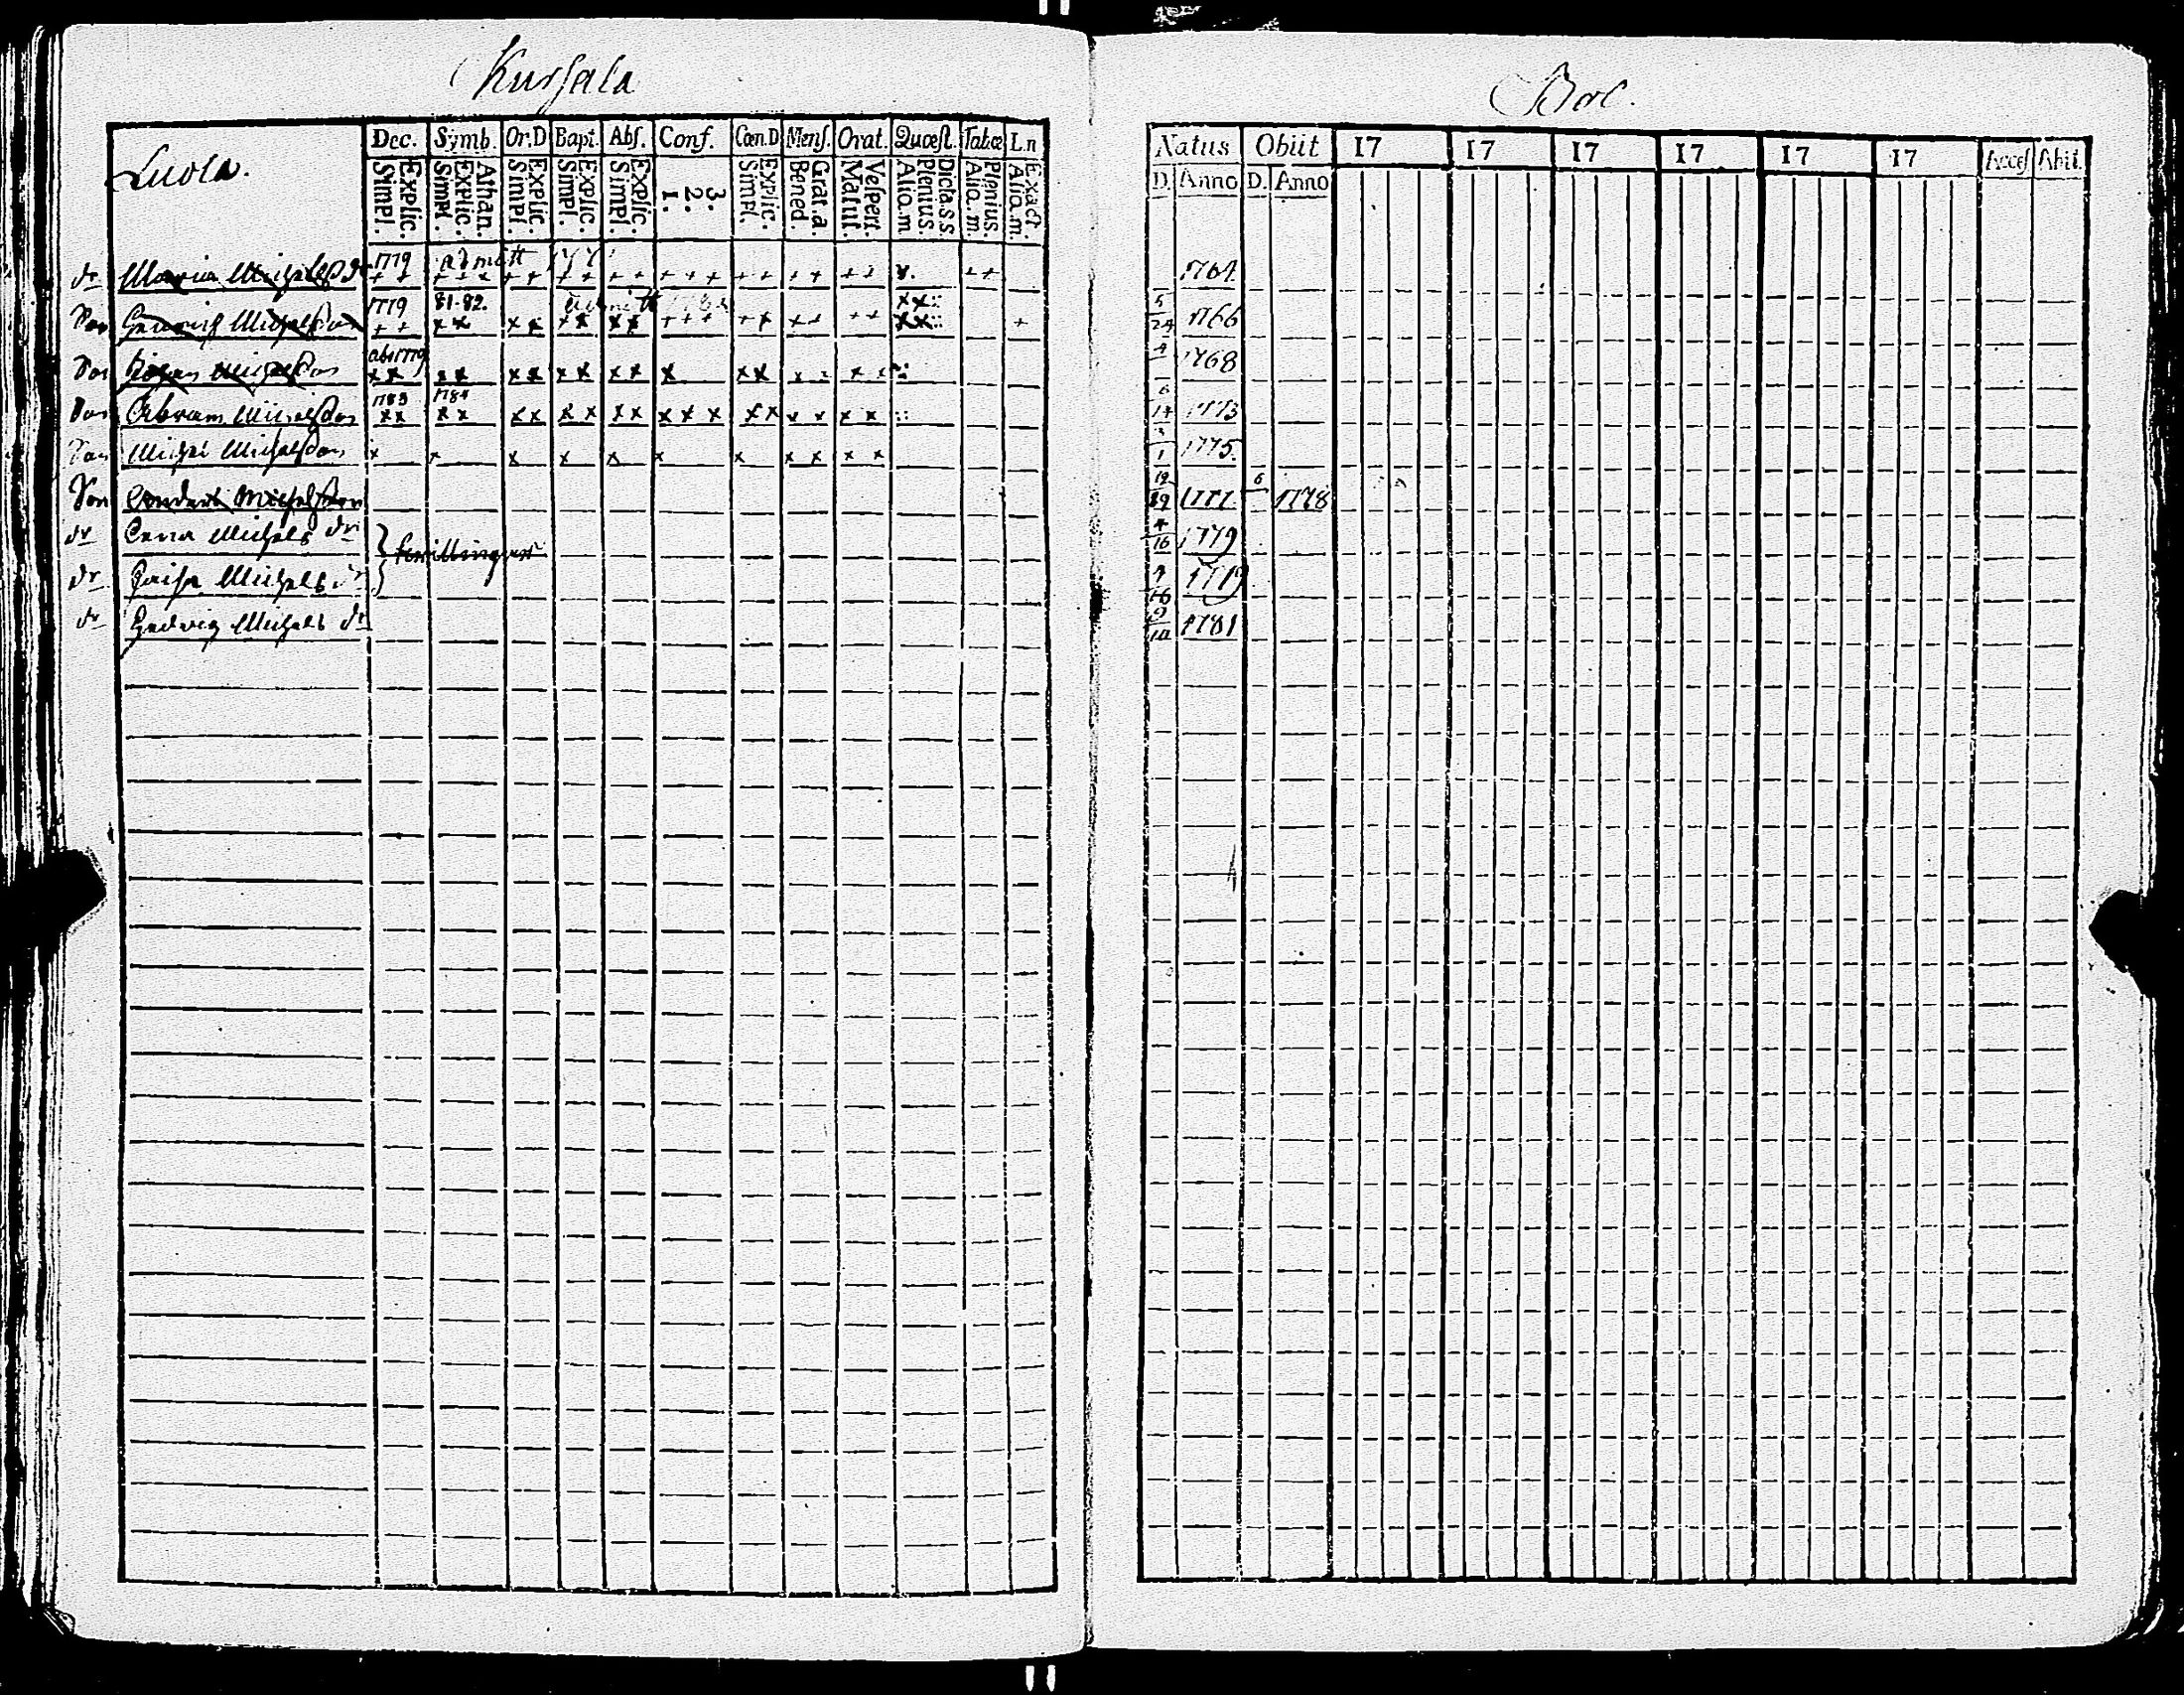 Kursala
Luola.
Dec. Symb. Or.D Bapt. Abſ. Conf. Cœn.D Menſ. Orat. Quœſt. Tabœ Ln
Explic. Simpl. Athan. Explic. Simpl. Explic. Simpl. Explic. Simpl. Explic. Simpl. 3. 2. 1. Explic. Simpl. Grat.a. Bened. Veſpert. Matut. Dicta.s.s Plenius. Alio.m Plenius. Alio.m. Exact. Alio.m.
1779 admitt 177
dr Maria Michelsdr + + + + × + + + + + + + + + + + + + + + ×. ++
1779 81-82. admitt 1782 ××::
Son Henrich Michelsson + + × × × × + × × × + + + + × × + + + ××:: +
abs 1779
Son Johan Michelsson × × × × × × × × × × × × × × × × ×
1783 1784
Son Abram Michelsson × × × × × × × × × × × × × × × × × × × ::
Son Michel Michelsson × × × × × × × × × × ×
Son Anders Michelsson
dr Anna Michels dr
} twillingar
dr Caisa Michels dr
dr Hedvig Michels dr
Bol.
Natus Obiit 17 17 17 17 17 17 Acceſ Abit.
D. Anno D. Anno
1764
5/24 1766
4 1768
6/14 1773
3/1 1775.
12/29 1777. 6 1778
4/16 1779
4/16 1779
9/10 1781